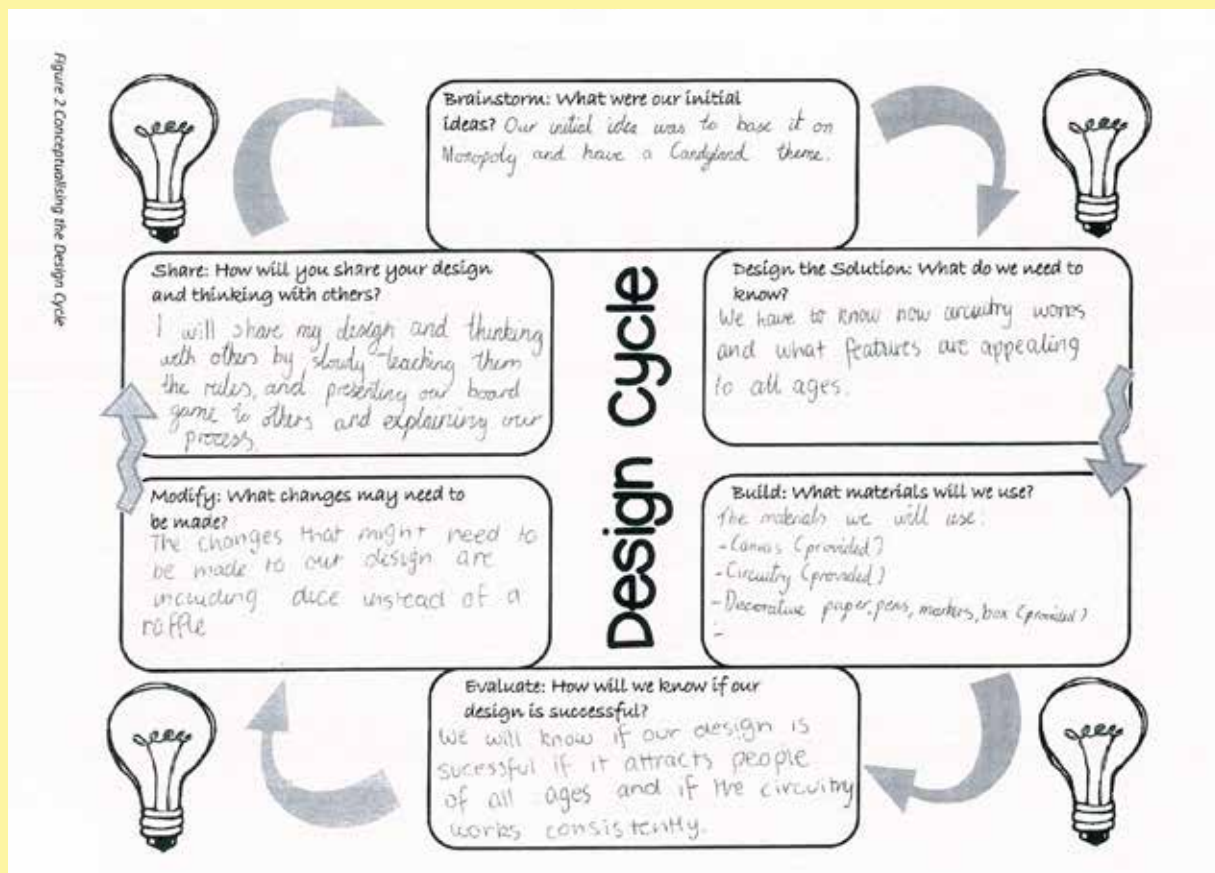 Figure 2 Conceptualising the Design Cycle
Brainstorm: What were our initial
ideas? Our initial idea was to base it on
Monopoly and have a Candyland theme.
Design the Solution: What do we need to
know?
We have to know how circuitry works
and what features are appealing
to all ages.
Build: What materials will we use?
The materials we will use:
- Canvas (provided?
- Circuitry (provided?
- Decorative paper, pens, markers, box (provided?
-
Evaluate: How will we know if our
design is successful?
We will know if our design is
sucessful if it attracts people
of all ages and if the circuitry
works consistently.
Modify: What changes may need to
be made?
The changes that might need to
be made to our design are
including dice instead of a
raffle
Share: How will you share your design
and thinking with others?
I will share my design and thinking
with others by slowly teaching them
the rules, and presenting our board
game to others and explaining our
process.
Design Cycle